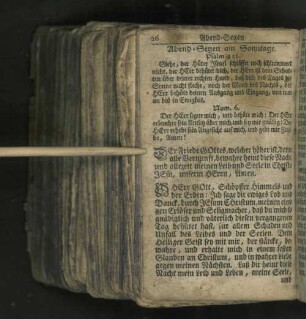 26 Abend-Segen
Abend-Segen am Sonntage.
Psalm 121.
Siehe, der Hüter Israel schläffet noch schlummert
nicht, der HErr behütet dich, der HErr ist dein Schat-
ten über deiner rechten Hand, daß dich des Tages die
Sonne nicht steche, noch der Mond des Nachts, der
HErr behüte deinen Außgang und Eingang, von nun
an biß in Ewigkeit.
Num. 6.
Der HErr segne mich, und behüte mich: Der HErr
erleuchte sein Antlitz über mich und sey mir gnädig: Der
HErr erhebe sein Angesicht auf mich, und gebe mir Frie-
de, Amen!
DEr Friede GOttes, welcher höher ist, denn
alle Vernunfft, bewahre heint diese Nacht
und allezeit meinen Leib und Seele in Christo
JEsu, unserm HErrn, Amen.
HErr GOtt, Schöpffer Himmels und
der Erden: Ich sage dir ewiges Lob und
Danck, durch JEsum Christum, meinen eini-
gen Erlöser und Seligmacher, daß du mich so
gnädiglich und väterlich diesen vergangenen
Tag behütet hast, für allem Schaden und
Unfall des Leibes und der Seelen. Dein
Heiliger Geist sey mit mir, der stärcke, be-
wahre, und erhalte mich in einem festen
Glauben an Christum, und in wahrer Liebe
gegen meinen Nächsten. Laß dir heint diese
Nacht mein Leib und Leben, meine Seele,
und